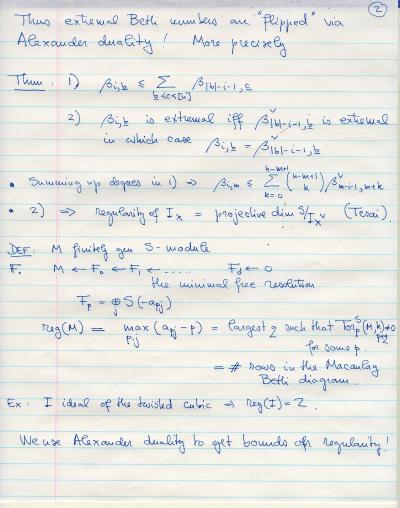 2
Thus extremal Betti numbers are "flipped" via
Alexander duality! More precisely
Thm: 1) β_{i,b} ≤ ∑_{b≤c≤[n]} β_{|b|-i-1,c}
2) β_{i,b} is extremal iff β^∨_{|b|-i-1,b} is extremal
in which case β_{i,b} = β^∨_{|b|-i-1,b}
• Summing up degrees in 1) ⇒ β_{i,m} ≤ ∑_{k=0}^{n-m+1} (n-m+1 k) β^∨_{m-i-1,m+k}
• 2) ⇒ regularity of I_X = projective dim S/I_X^∨ (Terai).
DEF: M finitely gen S-module
F. M ← F_0 ← F_1 ← ..... F_d ← 0
the minimal free resolution
F_p = ⊕_j S(-a_{pj})
reg(M) = max_{p,j} (a_{pj} - p) = largest q such that Tor_p^S(M,k)_{p+q} ≠ 0
for some p.
= # rows in the Macaulay
Betti diagram.
Ex: I ideal of the twisted cubic ⇒ reg(I) = 2.
We use Alexander duality to get bounds of regularity!